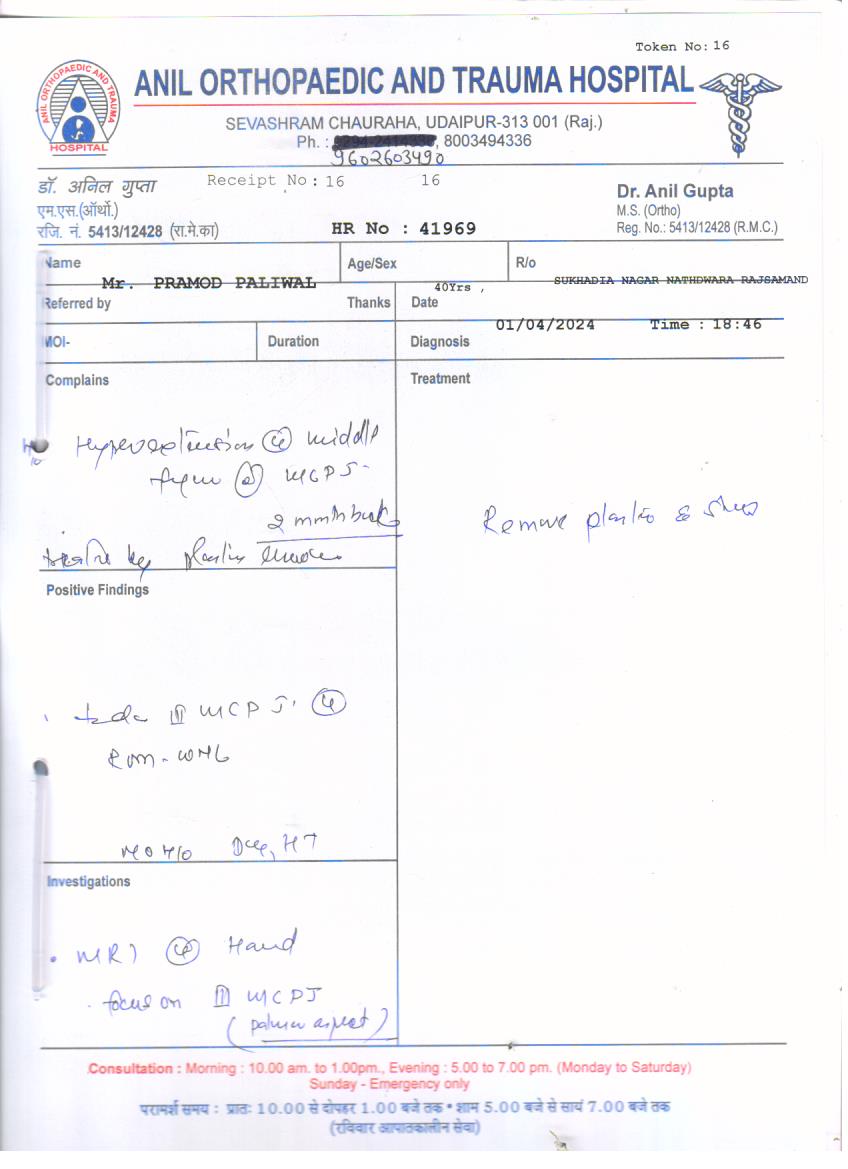 Token No: 16
ANIL ORTHOPAEDIC AND TRAUMA HOSPITAL
ANIL ORTHOPAEDIC AND TRAUMA
HOSPITAL
SEVASHRAM CHAURAHA, UDAIPUR-313 001 (Raj.)
Ph. : , 8003494336
9602603490
डॉ. अनिल गुप्ता
Receipt No : 16 16
Dr. Anil Gupta
एम.एस.(ऑर्थो.)
M.S. (Ortho)
रजि. नं. 5413/12428 (रा.मे.का)
HR No : 41969
Reg. No.: 5413/12428 (R.M.C.)
Name Age/Sex R/o
Mr. PRAMOD PALIWAL 40Yrs , SUKHADIA NAGAR NATHDWARA RAJSAMAND
Referred by Thanks Date
01/04/2024 Time : 18:46
MOI- Duration Diagnosis
Complains Treatment
middle
MCPJ
2 month back
Remove plastic &
by plastic
Positive Findings
III MCPJ
ROM - WNL
No H/O HT
Investigations
MRI Hand
focus on III MCPJ
(palmar aspect)
Consultation : Morning : 10.00 am. to 1.00pm., Evening : 5.00 to 7.00 pm. (Monday to Saturday)
Sunday - Emergency only
परामर्श समय : प्रातः 10.00 से दोपहर 1.00 बजे तक • शाम 5.00 बजे से सायं 7.00 बजे तक
(रविवार आपातकालीन सेवा)